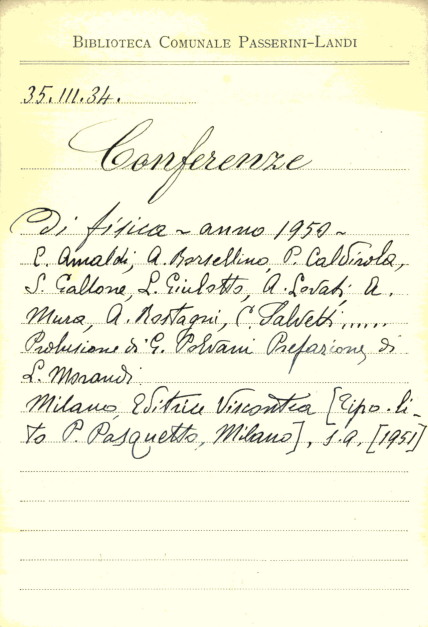 BIBLIOTECA COMUNALE PASSERINI-LANDI
35.III.34.
Conferenze
Di fisica ~ anno 1950 ~
E. Amaldi, A. Borsellino P. Caldirola,
S. Gallone, L. Giulotto, A. Lovati, A.
Mura, A. Rostagni, C. Salvetti, .....
Prolusione di G. Polvani Prefazione di
L. Morandi
Milano, Editrice Viscontea [Tipo-li-
to P. Pasquetto, Milano], s.a. [1951]